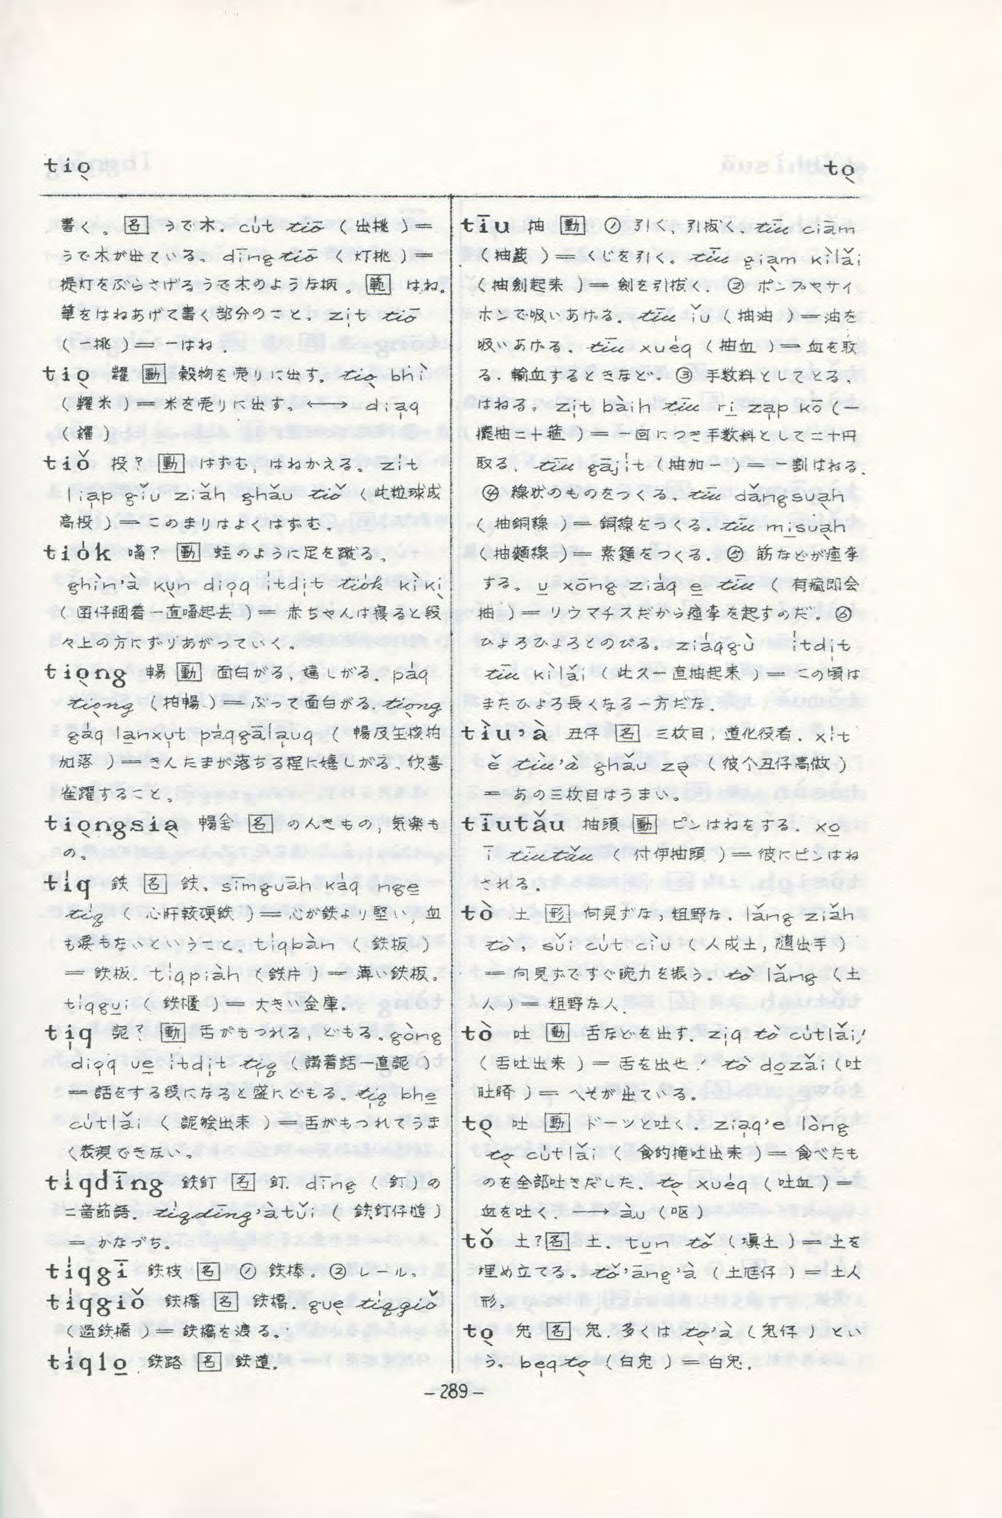 tiọ
tọ
書く。[名] うで木。cu̍t tiō（出挑）＝
うで木が出ている。dīng tiō（灯挑）＝
提灯をぶらさげるうで木のような柄。[範] はね。
筆をはねあげて書く部分のこと。zi̍t tiō
（一挑）＝一はね。
tiọ 糶 [動] 穀物を売りに出す。tiọ bhì
（糶米）＝米を売りに出す。←→ dia̍q
（糴）
tiǒ 投？[動] はずむ, はねかえる。zi̍t
lia̍p giǔ ziǎh ghǎu tiǒ（此粒球成
高投）＝このまりはよくはずむ。
[動] 蛙のように足を蹴る。
々上の方にずりあがっていく。
tiọng 暢 [動] 面白がる, 嬉しがる。pa̍q
tiọng（拍暢）＝ぶって面白がる。tiọng
＝きんたまが落ちる程に嬉しがる、欣喜
雀躍すること。
tiọngsiạ 暢舍 [名] のんきもの, 気楽も
の。
ti̍q 鉄 [名] 鉄。simguāh ka̍q ngẹ
ti̍q（心肝較硬鉄）＝心が鉄より堅い, 血
も涙もないということ。ti̍qbàn（鉄板）
＝鉄板。ti̍qpiàh（鉄片）＝薄い鉄板。
ti̍qgụi（鉄櫃）＝大きい金庫。
[動] 舌がもつれる, どもる。gòng
（講着話一直）
＝話をする段になると盛にどもる。ti̍q bhe̱
cu̍tlǎi（絵出来）＝舌がもつれてうま
く表現できない。
ti̍qdīng 鉄釘 [名] 釘。dīng（釘）の
二音節語。ti̍qdīng'àtuǐ（鉄釘仔槌）
＝かなづち。
ti̍qgī 鉄枝 [名] ① 鉄棒。② レール。
ti̍qgiǒ 鉄橋 [名] 鉄橋。gụe ti̍qgiǒ
（過鉄橋）＝鉄橋を渡る。
ti̍qlo̱ 鉄路 [名] 鉄道。
tīu 抽 [動] ① 引く, 引抜く。tīu ciām
（抽籤）＝くじを引く。tīu giạm kìlǎi
（抽劍起来）＝劍を引抜く。② ポンプやサイ
ホンで吸いあげる。tīu iǔ（抽油）＝油を
吸いあげる。tīu xuėq（抽血）＝血を取
る。輸血するときなど。③ 手数料としてとる,
はねる。zi̍t bàih tīu ri̱ za̍p kō（一
擺抽二十箍）＝一回につき手数料として二十円
取る。tīu gāji̍t（抽加一）＝一割はねる。
④ 線状のものをつくる。tīu dǎngsụah
（抽銅線）＝銅線をつくる。tīu mi̱sụah
（抽麵線）＝素麵をつくる。⑤ 筋などが痙攣
する。u̱ xōng ziȧq e̱ tīu（有瘋即会
抽）＝リウマチスだから痙攣を起すのだ。⑥
ひょろひょろとのびる。
tīu kìlǎi（此久一直抽起来）＝この頃は
またひょろ長くなる一方だな。
tìu'à 丑仔 [名] 三枚目, 道化役者。xi̍t
ě tìu'à ghǎu zọ（彼个丑仔高做）
＝あの三枚目はうまい。
tīutǎu 抽頭 [動] ピンはねをする。xo
ī tīutǎu（付伊抽頭）＝彼にピンはね
される。
tò 土 [形] 向見ずな, 粗野な。lǎng ziǎh
tò, sǔi cu̍t cìu（人成土, 隨出手）
＝向見ずですぐ腕力を振う。tò lǎng（土
人）＝粗野な人。
tò 吐 [動] 舌などを出す。zi̍q tò cu̍tlǎi!
（舌吐出来）＝舌を出せ! tò dọzǎi（吐
肚臍）＝へそが出ている。
tọ 吐 [動] ドーッと吐く。zia̍q'e lòng
tọ cu̍tlǎi（食的攏吐出来）＝食べたも
のを全部吐きだした。tọ xuėq（吐血）＝
血を吐く。→ àu（嘔）
tǒ 土？[名] 土。tụn tǒ（填土）＝土を
埋め立てる。tǒ'āng'à（土尪仔）＝土人
形。
tọ 兎 [名] 兎。多くは tọ'à（兎仔）とい
う。be̍qtọ（白兎）＝白兎。
-289-